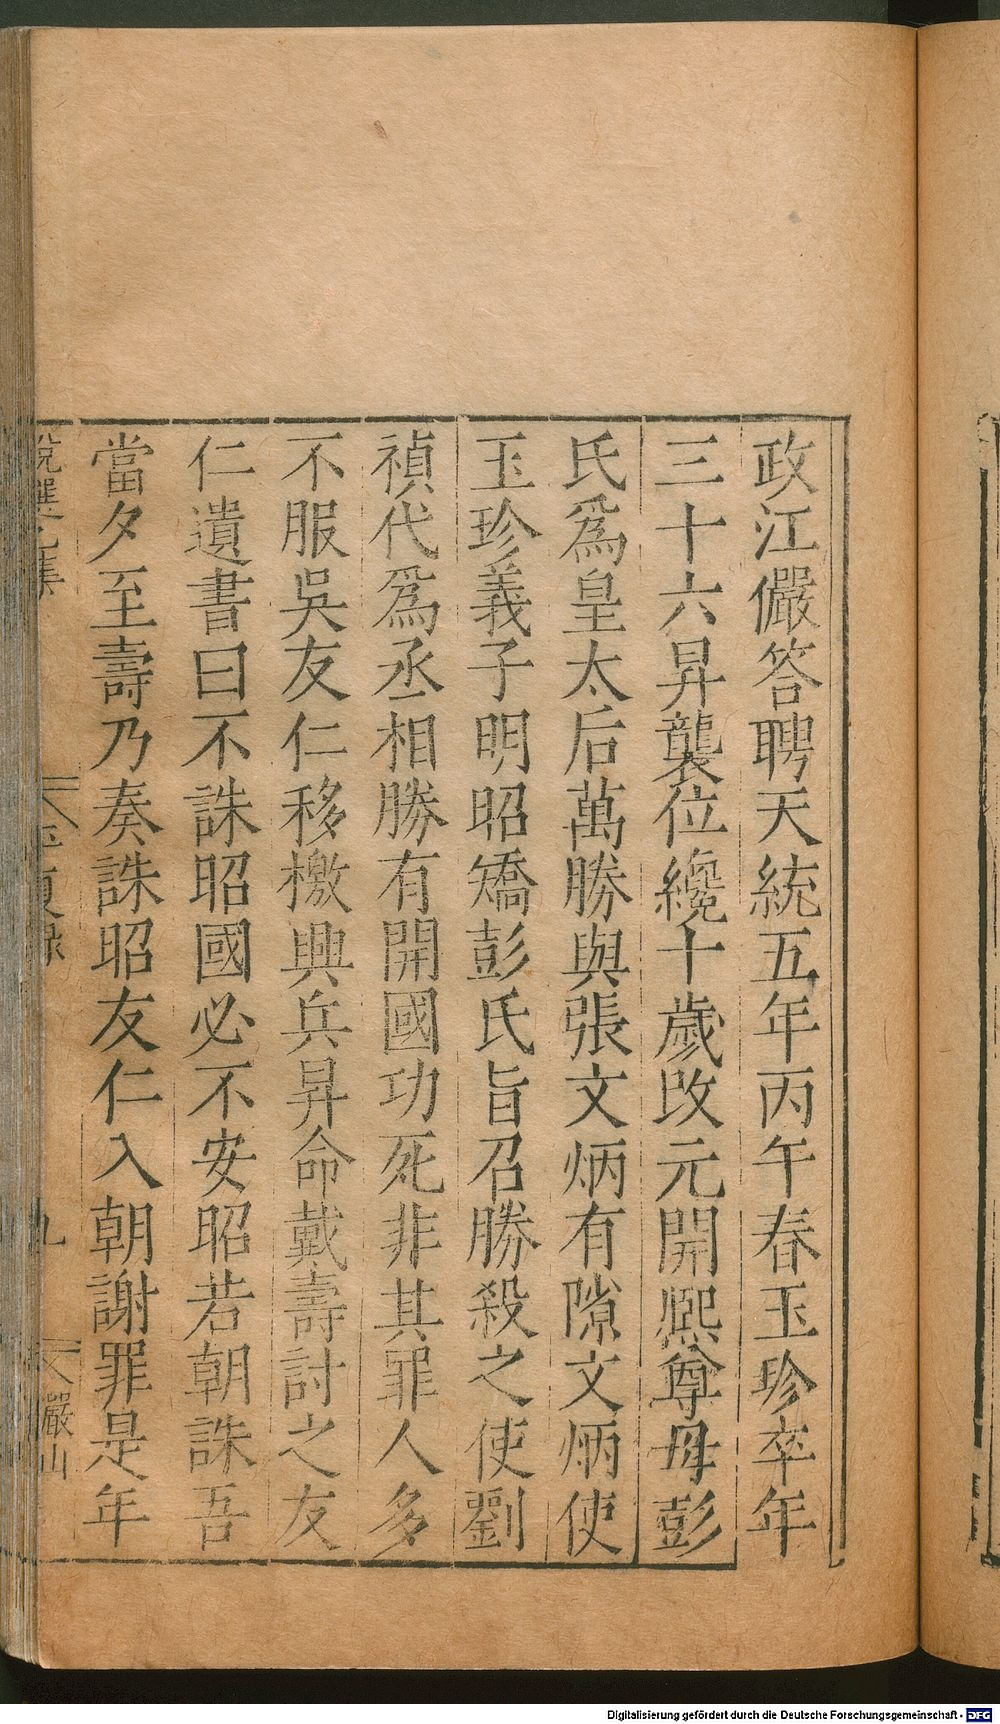 政江儼答聘天統五年丙午春玉珍卒年
三十六昇襲位纔十歲改元開熙尊母彭
氏爲皇太后萬勝與張文炳有隙文炳使
玉珍義子明昭矯彭氏旨召勝殺之使劉
禎代爲丞相勝有開國功死非其罪人多
不服吳友仁移檄興兵昇命戴壽討之友
仁遺書曰不誅昭國必不安昭若朝誅吾
當夕至壽乃奏誅昭友仁入朝謝罪是年
說選
九
儼山
Digitalisierung gefördert durch die Deutsche Forschungsgemeinschaft - DFG